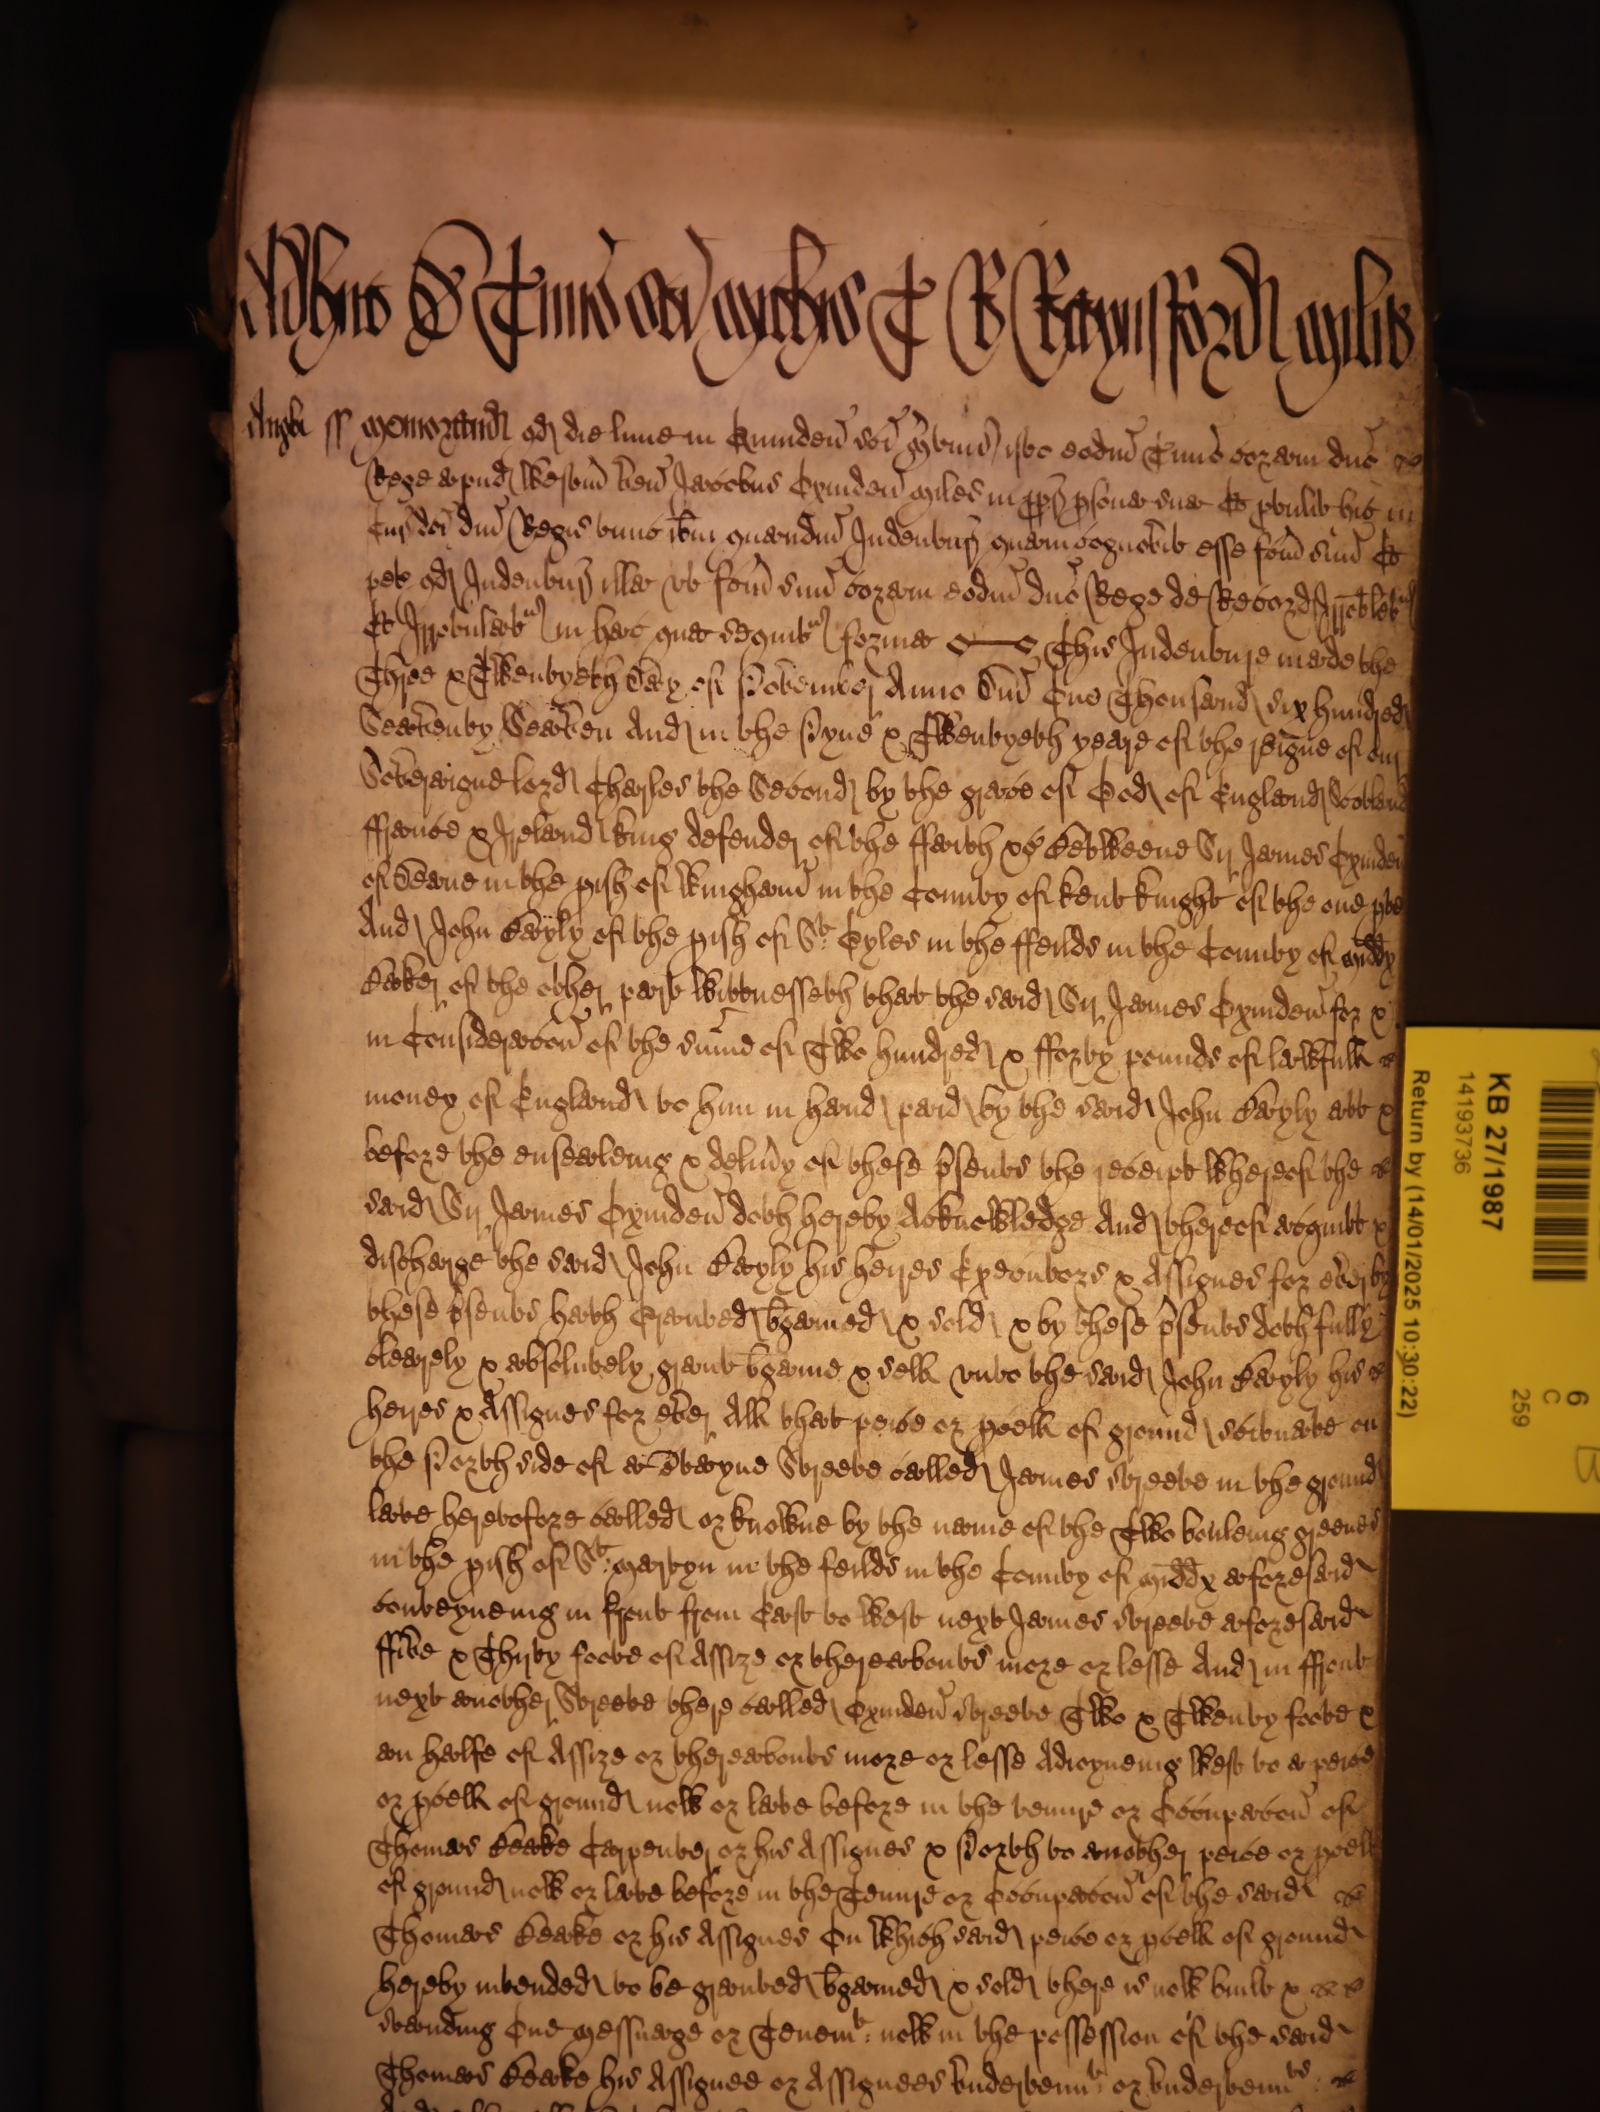 Adhuc De Termino Sci Michis T R Raynsford milit
Angl ss Memorand qd die lune in Quinden Sci Martini isto eodm Termino coram dno
Rege apud Westm ven Jacobus Oxinden miles in ppr psona sua Et ptulit hic in
Cur dci dni Regis tunc ibm quandm Indentur quam cognovit esse fcm suu Et
pet qd Indentur illa ut fcm suu coram eodm dno Rege de Record Irrotlet
Et Irrotulatr in hac que sequitr forma This Indenture made the
Three & Twentyeth Day of November Anno Dni One Thousand six hundred
Seaventy Seaven And in the Nyne & Twentyeth yeare of the reigne of our
Soveraigne lord Charles the Second by the grace of God of England Scotland
ffrance & Ireland King defender of the ffaith &c Betweene Sr James Oxinden
of Deane in the pish of Wingham in the County of Kent Knight of the one pte
And John Bayly of the pish of St Gyles in the ffeilds in the County of Middx
Baker of the other part Wittnesseth that the said Sr James Oxinden for &
in Consideracon of the sume of Two hundred & fforty pounds of lawfull
money of England to him in hand paid by the said John Bayly att &
before the ensealeing & delivy of these psents the receipt whereof the
said Sr James Oxinden doth hereby Acknowledge And thereof acquitt &
discharge the said John Bayly his heires Executors & Assignes for ever by
these psents hath Granted bgained & sold & by these psents doth fully
clearely & absolutely grant bgaine & sell unto the said John Bayly his
heires & Assignes for ever All that peice or pcell of ground scituate on
the North side of a Streete called James streete in the ground
late heretofore called or knowne by the name of the Two bouleing greenes
in the pish of St: Martyn in the feilds in the County of Middx aforesaid
conteyneing in front from East to West next James streete aforesaid
ffive & Thirty foote of Assize or thereabouts more or lesse And in ffront
next another Streete there called Oxinden streete Two & Twenty foote &
an halfe of Assize or thereabouts more or lesse Adioyneing West to a peice
or pcell of ground now or late before in the tenure or Occupacon of
Thomas Beake Carpenter or his Assignes & North to another peice or pcell
of ground now or late before in the Tenure or Occupacon of the said
Thomas Beake or his Assignes On which said peice or pcell of ground
hereby intended to be granted bgained & sold there is now built &
standing One Messuage or Tenemt: now in the possession of the said
Thomas Beake his Assignee or Assignees Undertennt: or Undertennts:
KB 27/1987
14193736
Return by (14/01/2025 10:30:22)
6
C
259